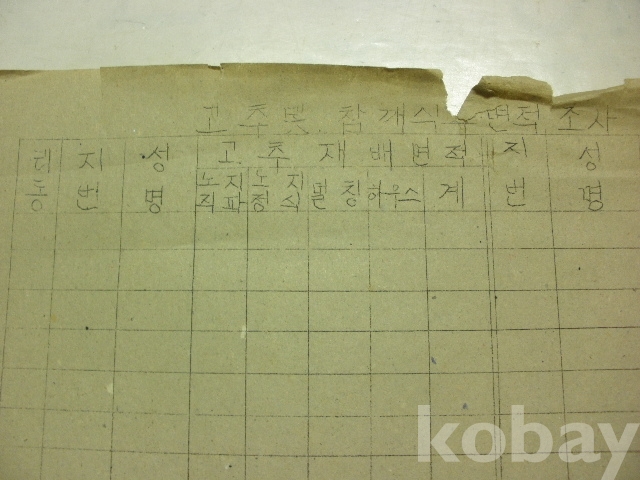 고추및 참개식 면적 조사
리동 지번 성명 고추재배면적 지번 성명
노지직파 노지정식 멀칭 하우스 계
kobay